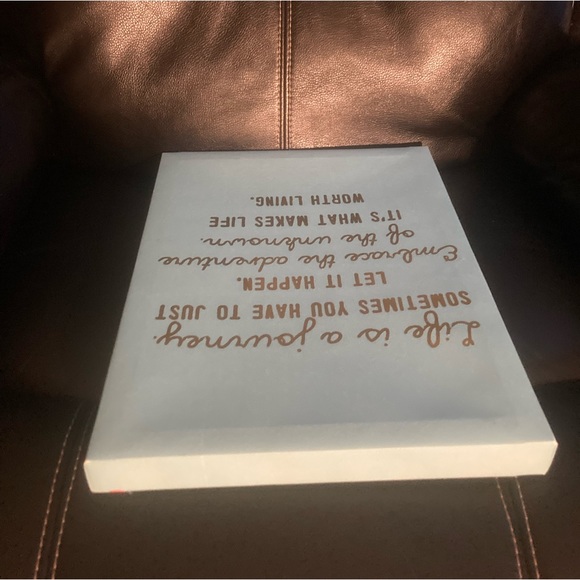 Life is a journey.
SOMETIMES YOU HAVE TO JUST
LET IT HAPPEN.
Embrace the adventure
of the unknown.
IT'S WHAT MAKES LIFE
WORTH LIVING.